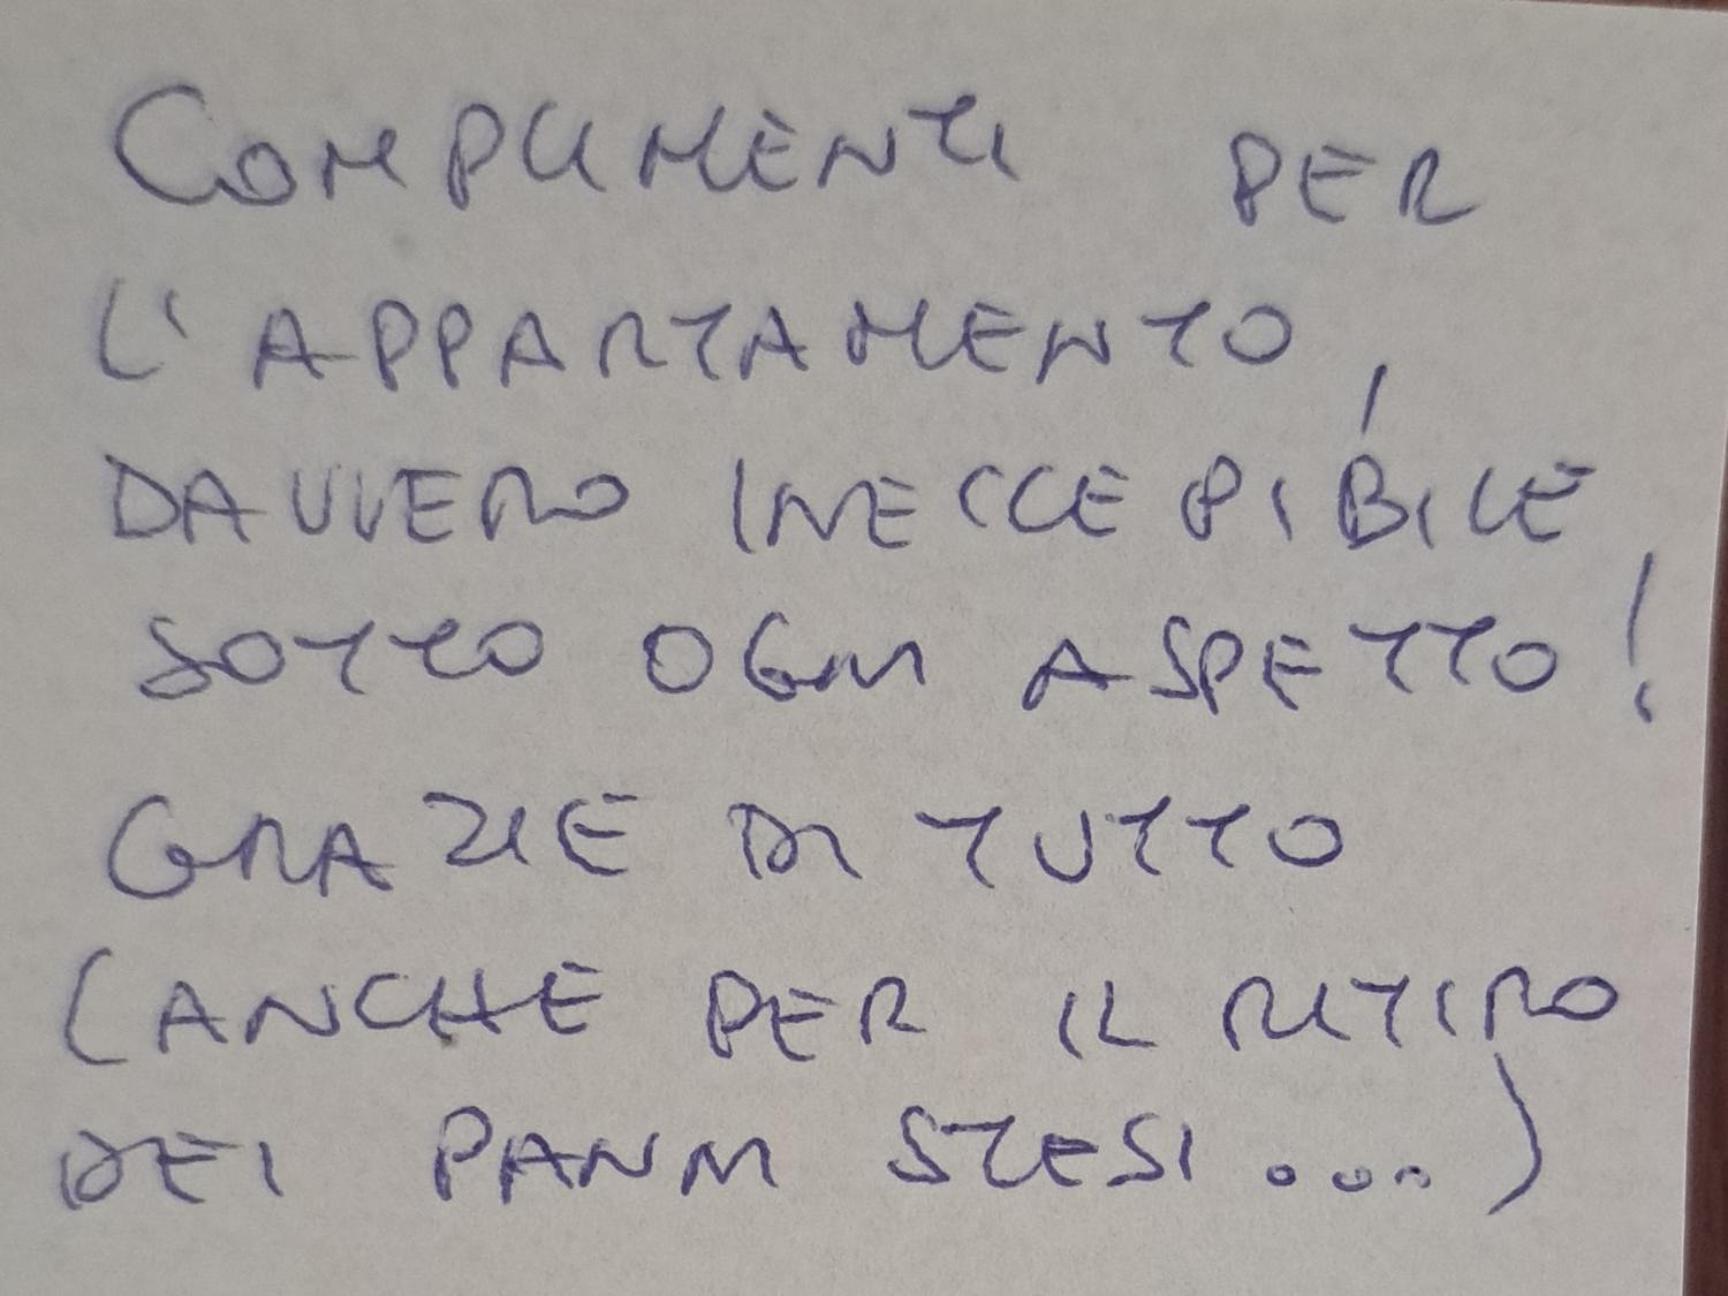 COMPLIMENTI PER
L'APPARTAMENTO,
DAVVERO INECCEPIBILE
SOTTO OGNI ASPETTO!
GRAZIE DI TUTTO
(ANCHE PER IL RITIRO
DEI PANNI STESI...)